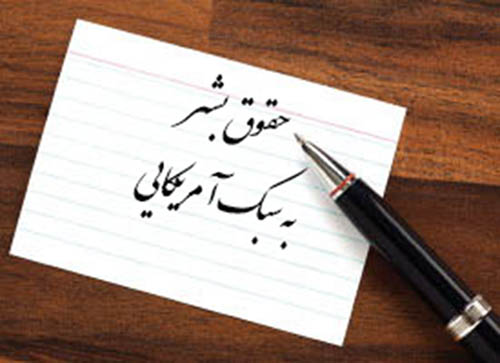 حقوق بشر
به سبک آمریکایی